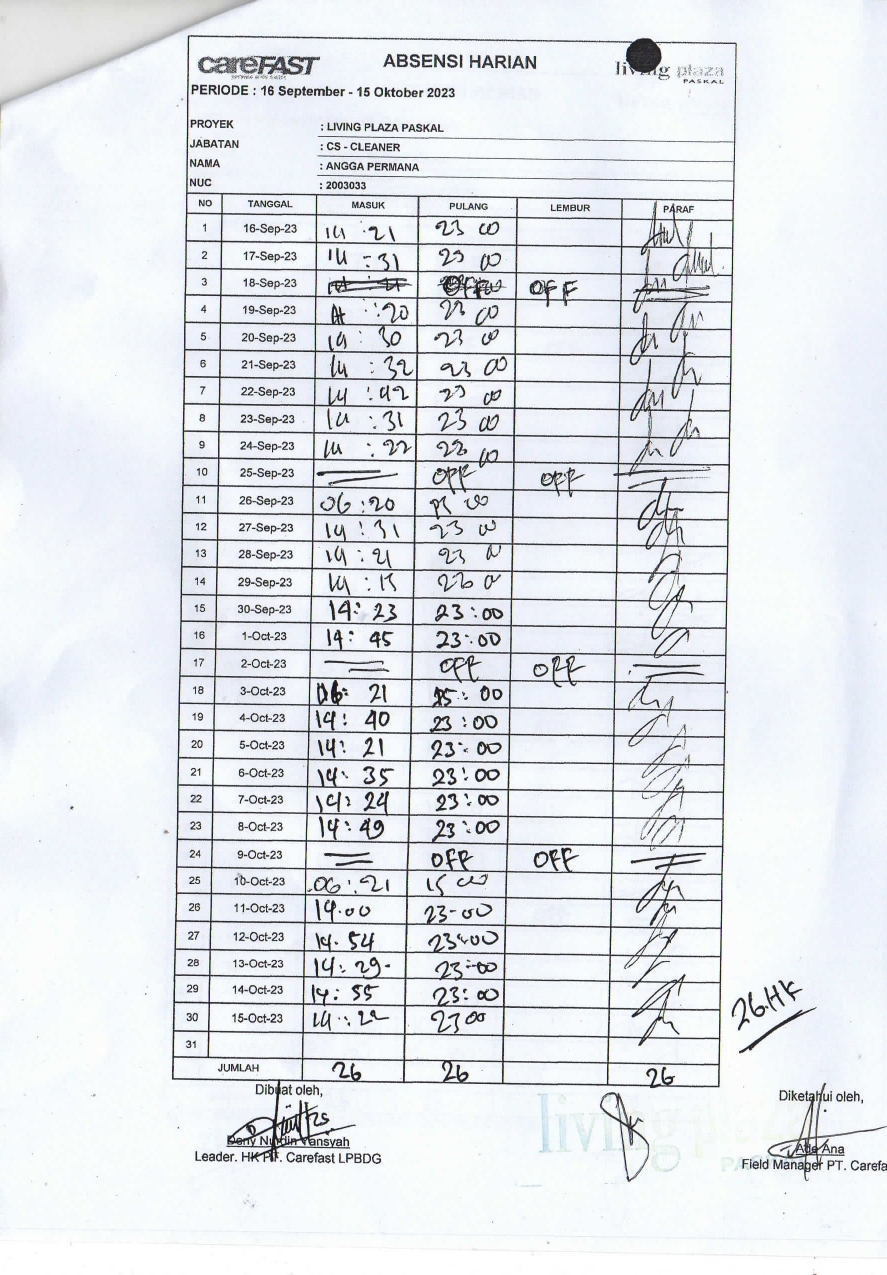 careFAST
ABSENSI HARIAN
living plaza
PASKAL
PERIODE : 16 September - 15 Oktober 2023
PROYEK : LIVING PLAZA PASKAL
JABATAN : CS - CLEANER
NAMA : ANGGA PERMANA
NUC : 2003033
NO TANGGAL MASUK PULANG LEMBUR PARAF
1 16-Sep-23 14 : 21 23 00
2 17-Sep-23 14 : 31 23 00
3 18-Sep-23 OFF
4 19-Sep-23 : 20 23 00
5 20-Sep-23 14 : 30 23 00
6 21-Sep-23 14 : 32 23 00
7 22-Sep-23 14 : 42 23 00
8 23-Sep-23 14 : 31 23 00
9 24-Sep-23 14 : 22 23 00
10 25-Sep-23 OFF OFF
11 26-Sep-23 06 : 20 00
12 27-Sep-23 14 : 31 23 00
13 28-Sep-23 14 : 21 23
14 29-Sep-23 14 : 15
15 30-Sep-23 14: 23 23:00
16 1-Oct-23 14: 45 23:00
17 2-Oct-23 OFF OFF
18 3-Oct-23 06: 21 15:00
19 4-Oct-23 14: 40 23:00
20 5-Oct-23 14: 21 23:00
21 6-Oct-23 14: 35 23:00
22 7-Oct-23 14: 24 23:00
23 8-Oct-23 14: 49 23:00
24 9-Oct-23 OFF OFF
25 10-Oct-23 06 : 21 15 00
26 11-Oct-23 14.00 23-00
27 12-Oct-23 14. 54 23:00
28 13-Oct-23 14: 29- 23:00
29 14-Oct-23 14: 55 23:00
30 15-Oct-23 14 : 22 23 00
31
JUMLAH 26 26 26
26.HK
Dibuat oleh,
Diketahui oleh,
Deny Nurdin Yansyah
Ade Ana
Leader. HK PT. Carefast LPBDG
Field Manager PT. Carefa
living plaza
PASKAL